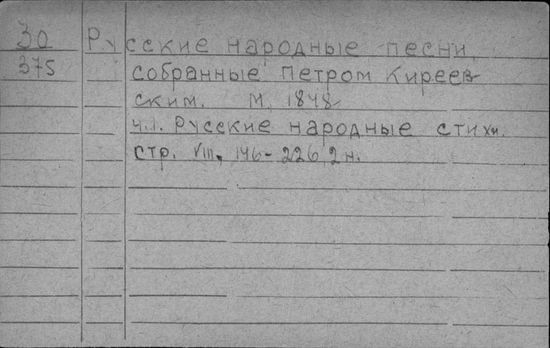 30 Русские народные песни
375 собранные Петром Киреев-
ским. М. 1848
ч.1. Русские народные стихи.
стр. VIII, 146-226, 2 н.